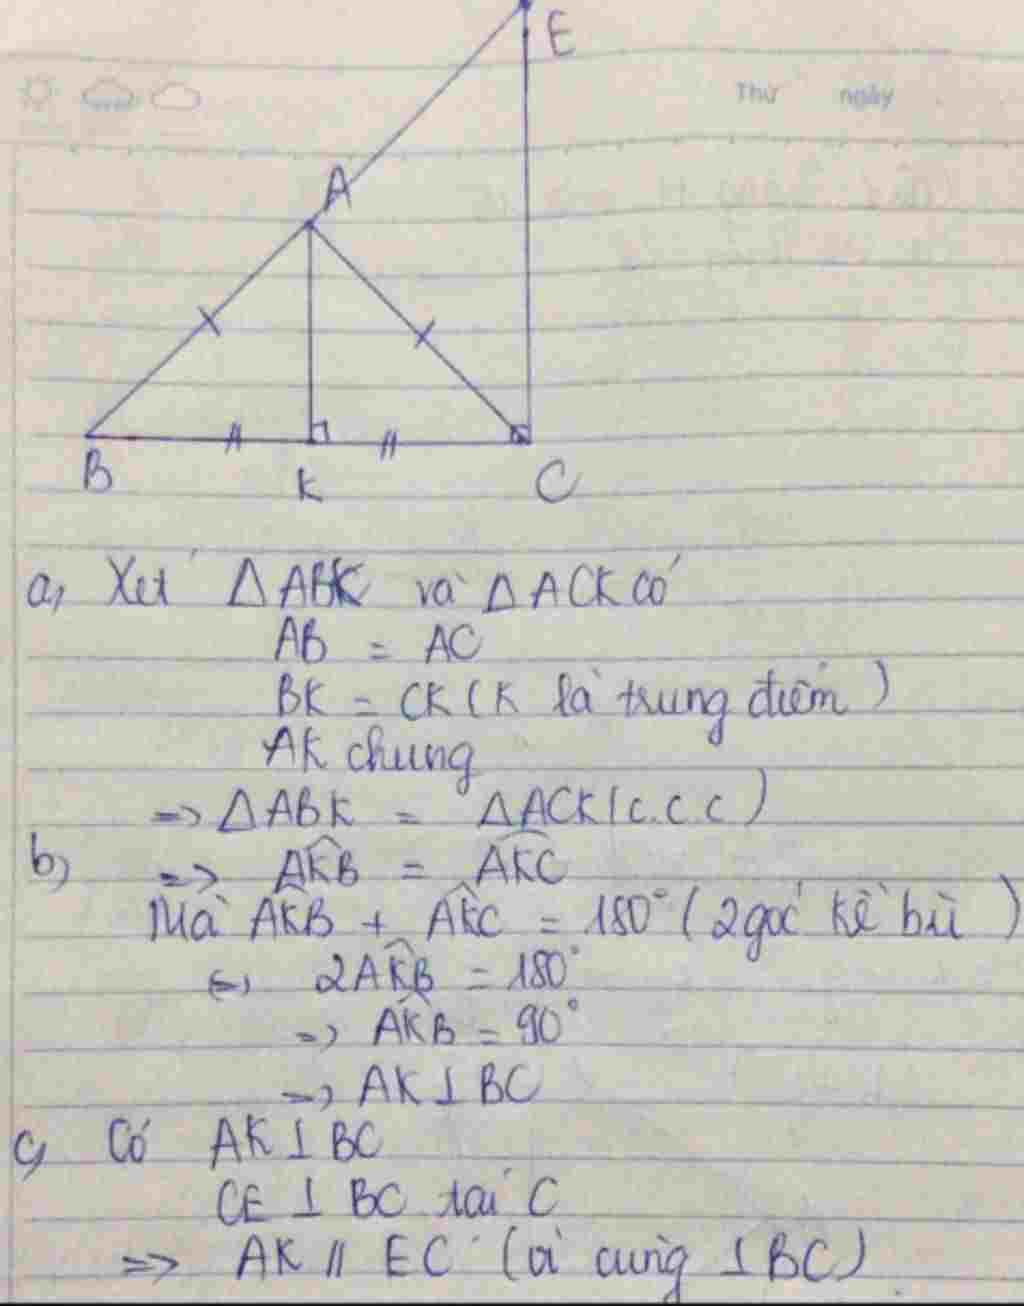 E
Thứ ngày
A
B K C
a, Xét ΔABK và ΔACK có
AB = AC
BK = CK (K là trung điểm)
AK chung
=> ΔABK = ΔACK (c.c.c)
b) => AKB = AKC
Mà AKB + AKC = 180° (2 góc kề bù)
(=) 2AKB = 180°
=> AKB = 90°
=> AK ⊥ BC
c, Có AK ⊥ BC
CE ⊥ BC tại C
=> AK // EC (vì cùng ⊥ BC)